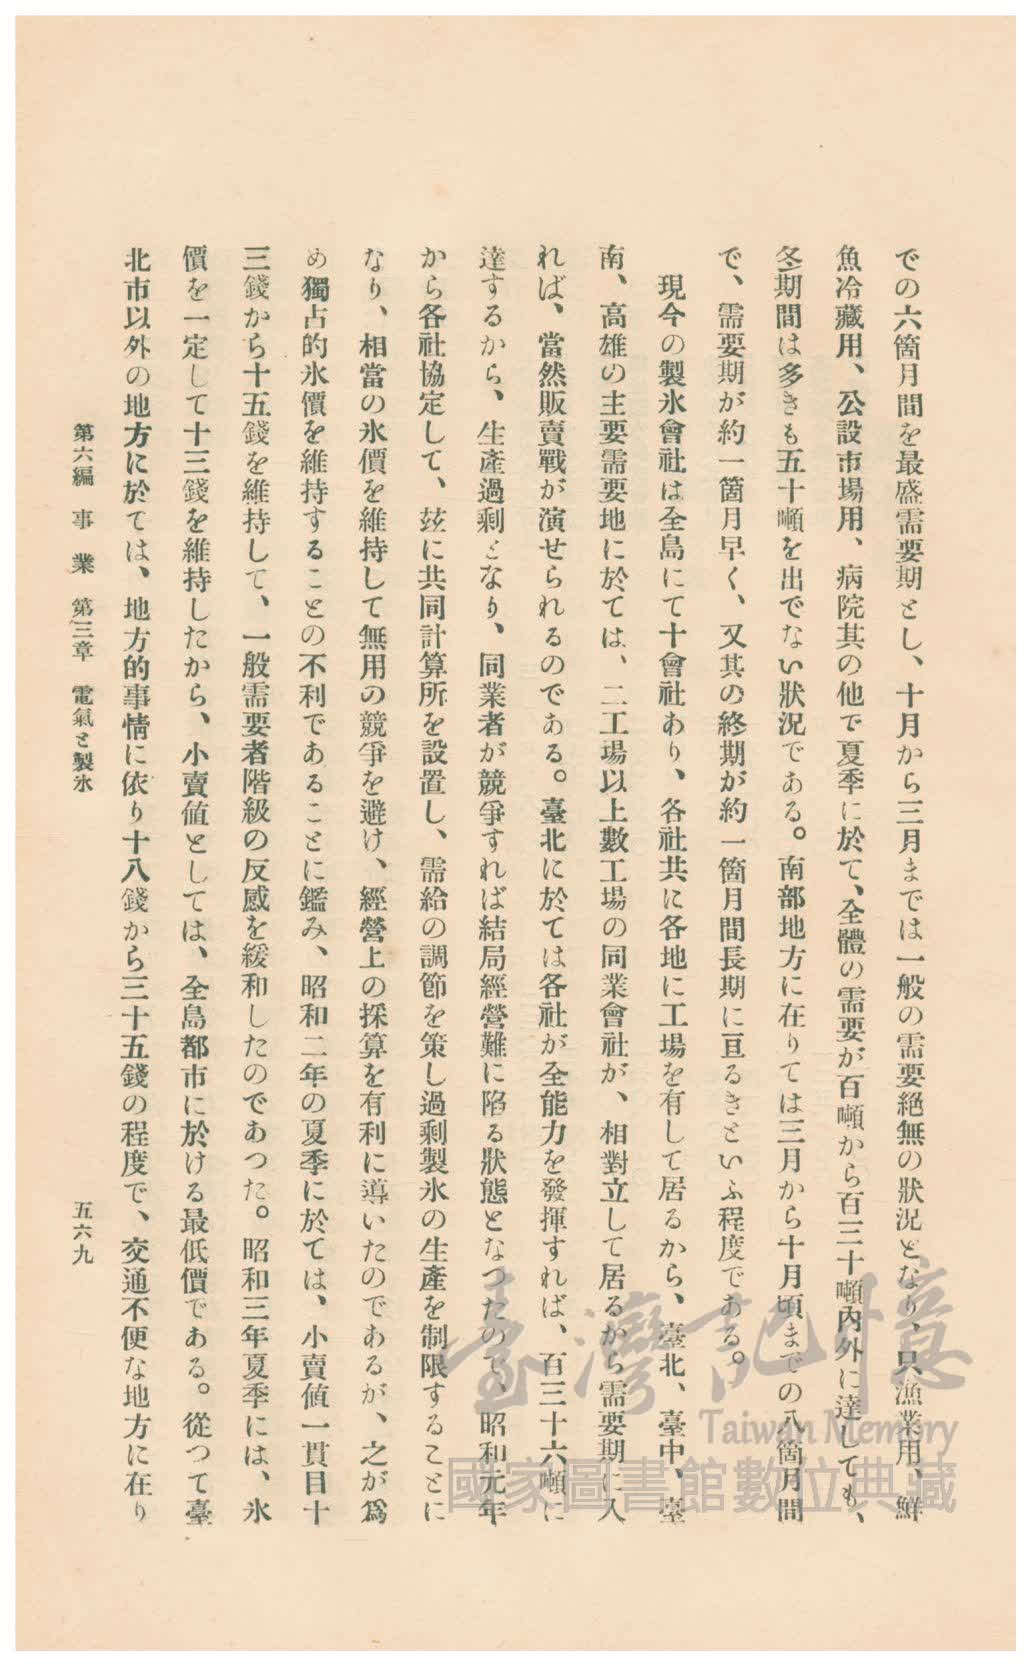 での六箇月間を最盛需要期とし、十月から三月までは一般の需要絕無の狀況となり、只漁業用、鮮
魚冷藏用、公設市場用、病院其の他で夏季に於て、全體の需要が百噸から百三十噸內外に達しても、
冬期間は多きも五十噸を出でない狀況である。南部地方に在りては三月から十月頃までの八箇月間
で、需要期が約一箇月早く、又其の終期が約一箇月間長期に亘るきといふ程度である。
現今の製氷會社は全島にて十會社あり、各社共に各地に工場を有して居るから、臺北、臺中、臺
南、高雄の主要需要地に於ては、二工場以上數工場の同業會社が、相對立して居るから需要期に入
れば、當然販賣戰が演せられるのである。臺北に於ては各社が全能力を發揮すれば、百三十六噸に
達するから、生產過剩となり、同業者が競爭すれば結局經營難に陷る狀態となつたので、昭和元年
から各社協定して、玆に共同計算所を設置し、需給の調節を策し過剩製氷の生產を制限することに
なり、相當の氷價を維持して無用の競爭を避け、經營上の採算を有利に導いたのであるが、之が爲
め獨占的氷價を維持することの不利であることに鑑み、昭和二年の夏季に於ては、小賣値一貫目十
三錢から十五錢を維持して、一般需要者階級の反感を緩和したのであつた。昭和三年夏季には、氷
價を一定して十三錢を維持したから、小賣値としては、全島都市に於ける最低價である。從つて臺
北市以外の地方に於ては、地方的事情に依り十八錢から三十五錢の程度で、交通不便な地方に在り
第六編 事業 第三章 電氣と製氷
五六九
臺灣記憶
Taiwan Memory
國家圖書館數位典藏